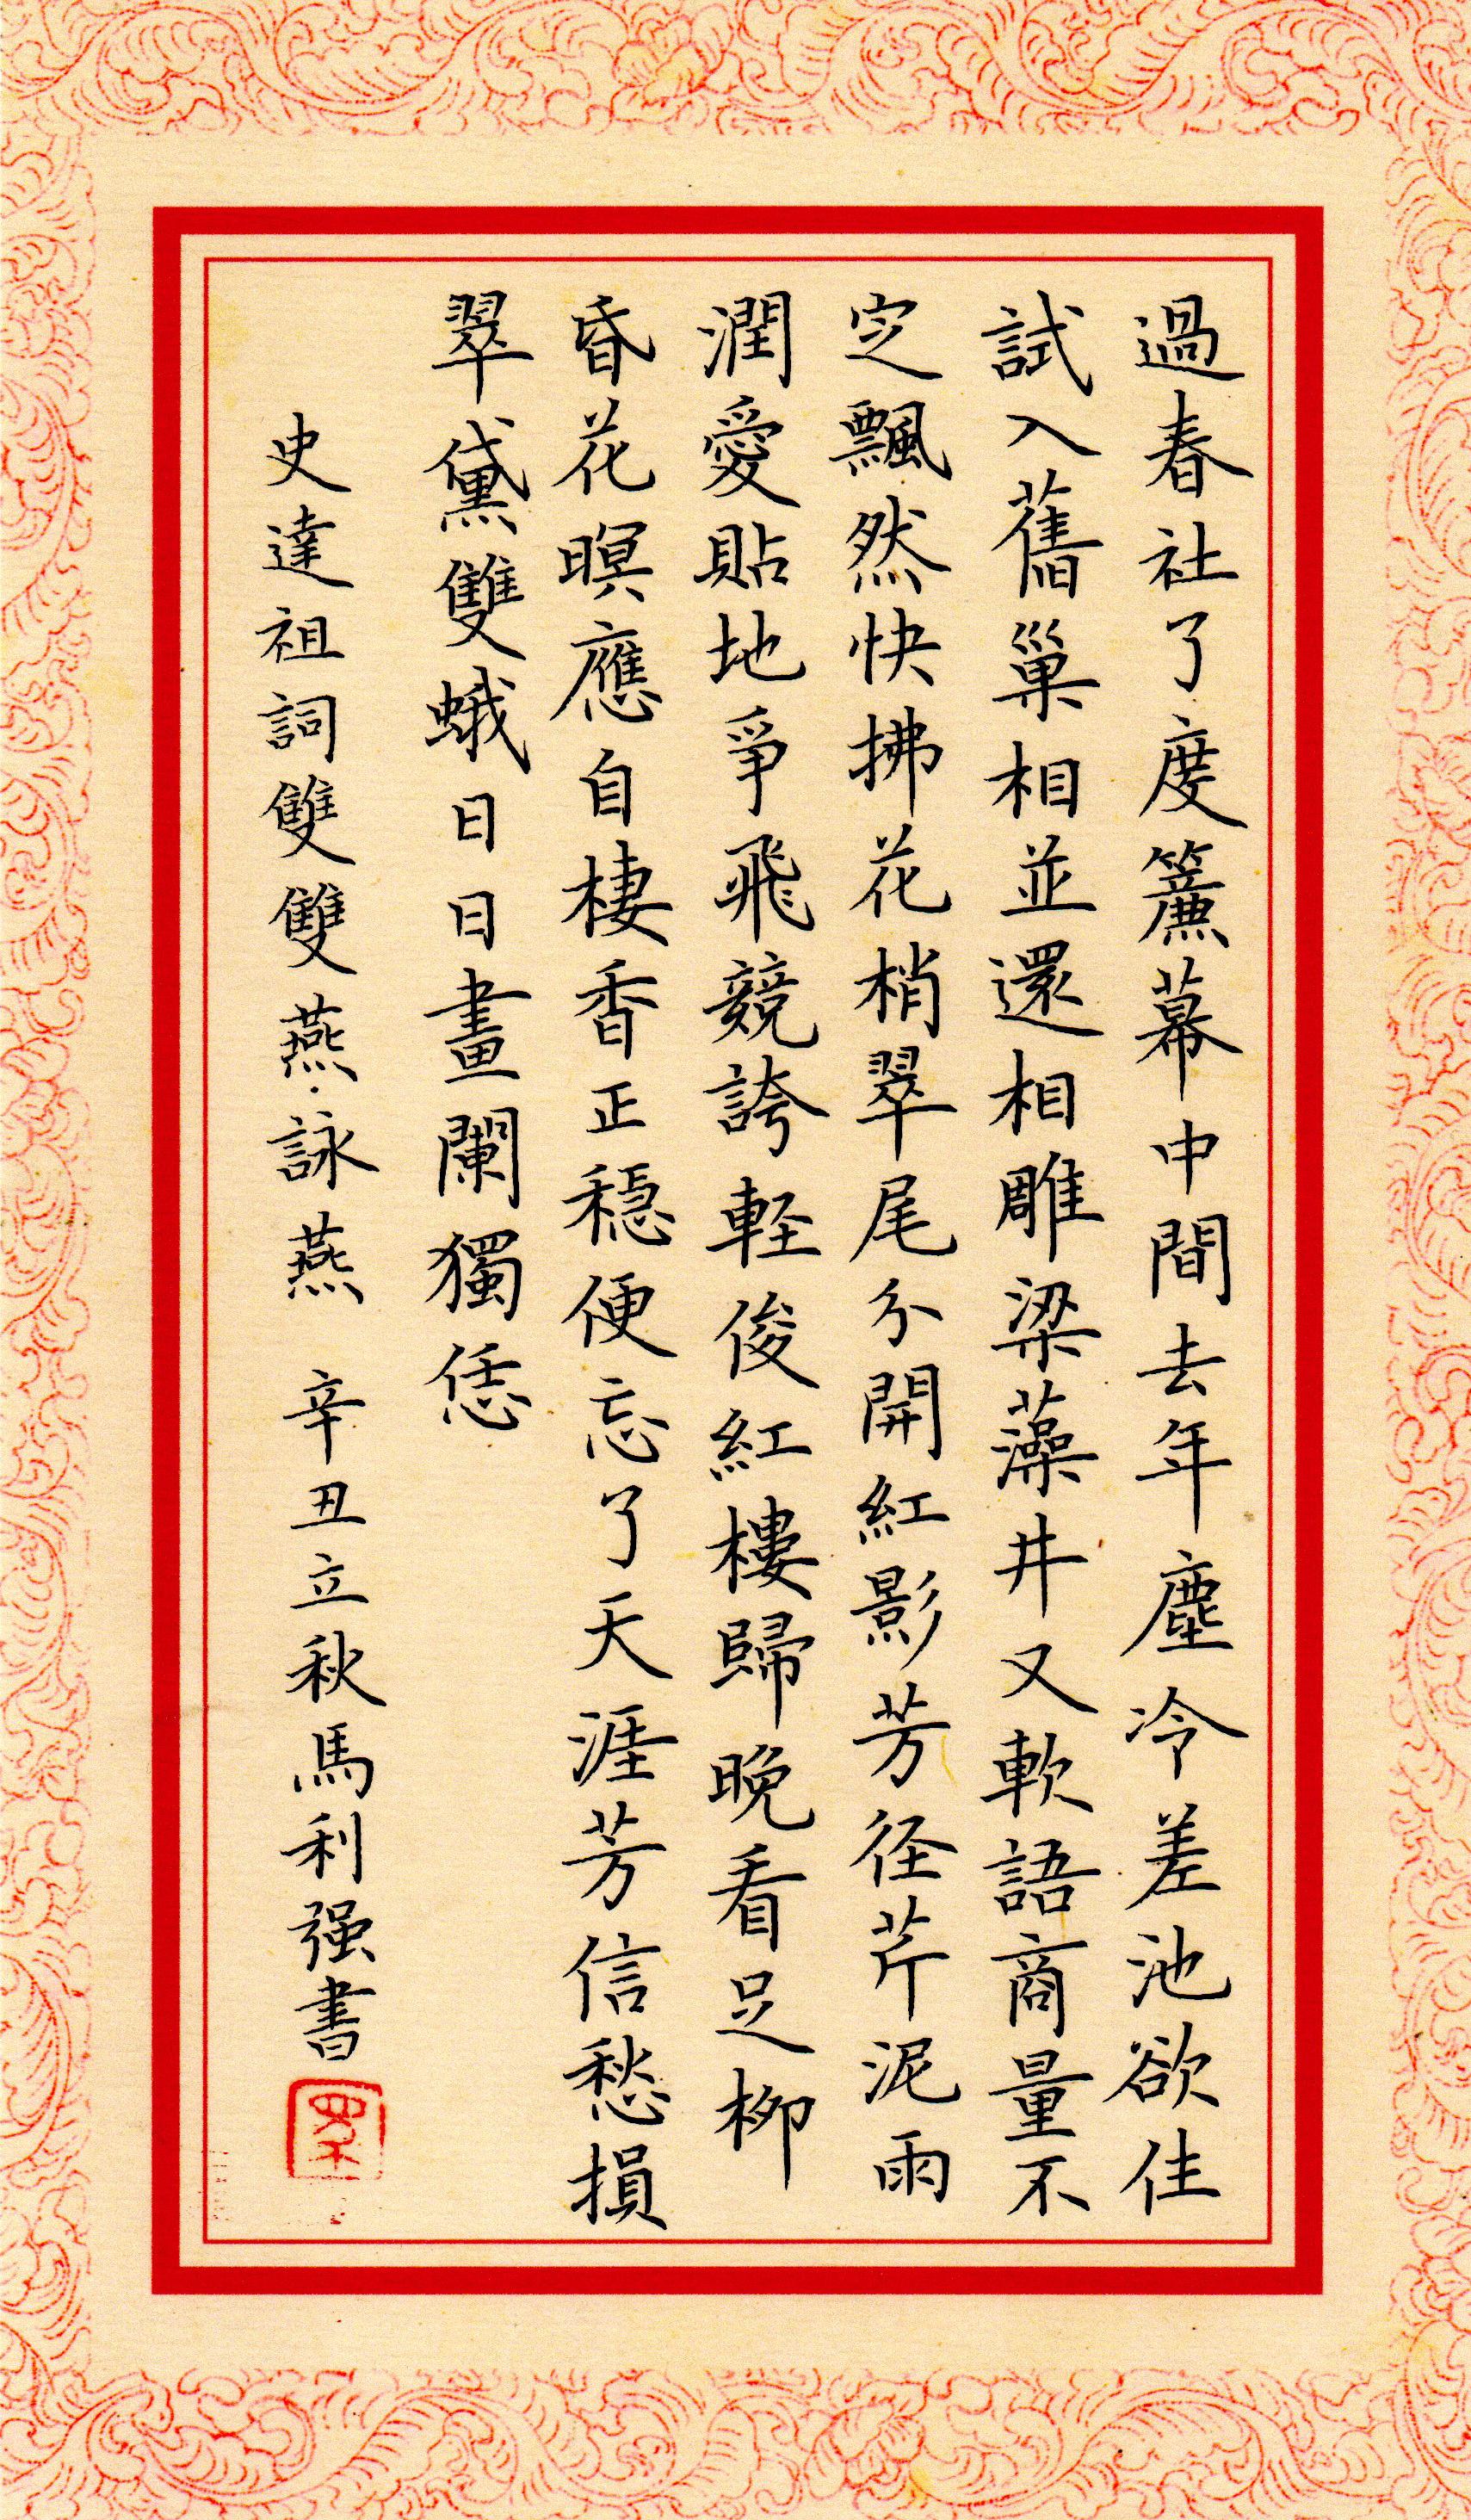 過春社了度簾幕中間去年塵冷差池欲住
試入舊巢相並還相雕梁藻井又軟語商量不
定飄然快拂花梢翠尾分開紅影芳径芹泥雨
潤愛貼地爭飛競誇軽俊紅樓歸晚看足柳
昏花暝應自棲香正穏便忘了天涯芳信愁損
翠黛雙蛾日日畫闌獨恁
史達祖詞雙雙燕·詠燕 辛丑立秋馬利强書